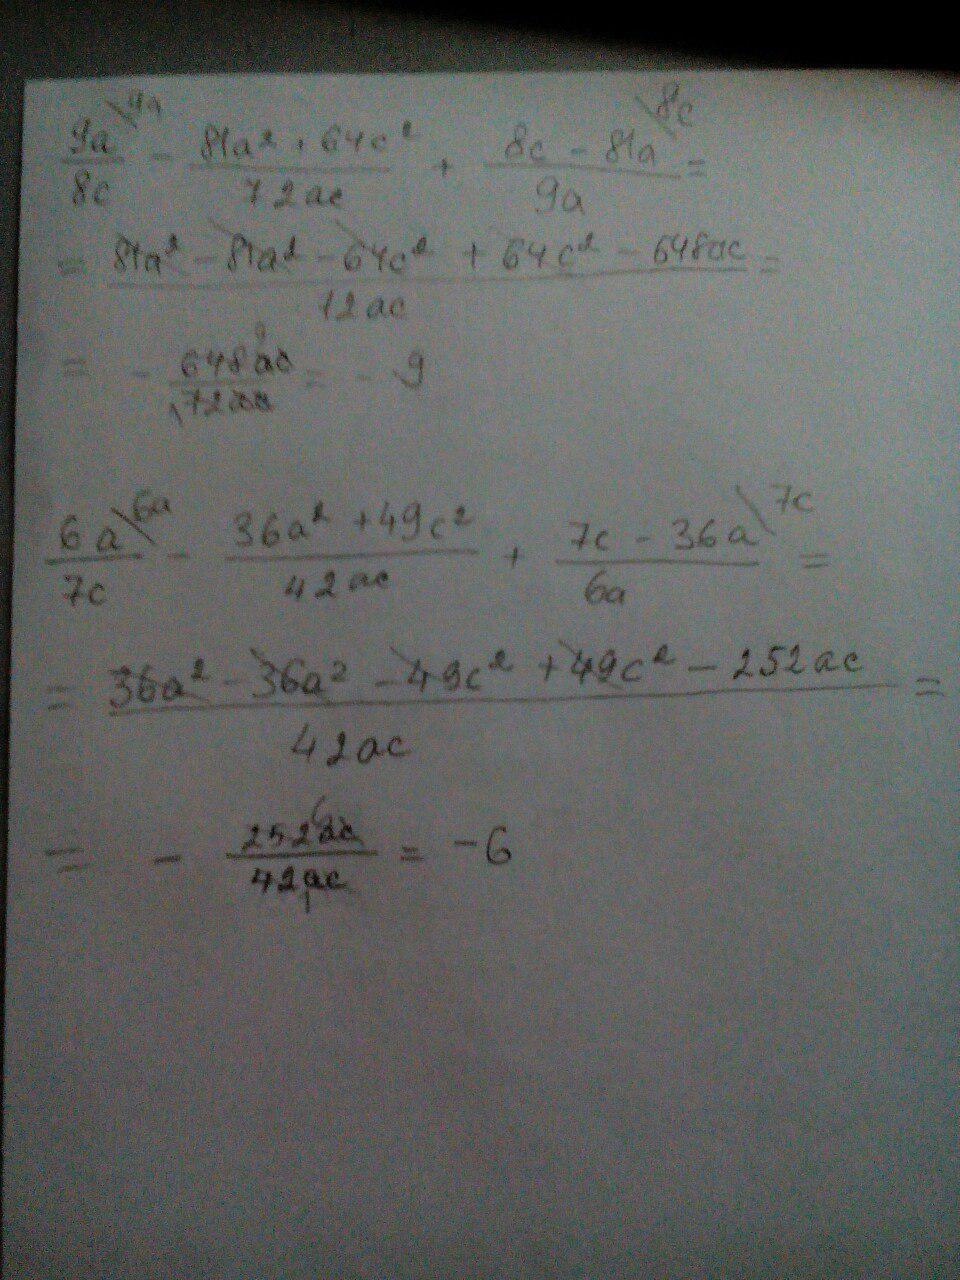 9a/8c \9a - (81a² + 64c²)/72ac + (8c - 81a)/9a \8c =
= (81a² - 81a² - 64c² + 64c² - 648ac)/72ac =
= - 648ac/72ac = - 9
6a/7c \6a - (36a² + 49c²)/42ac + (7c - 36a)/6a \7c =
= (36a² - 36a² - 49c² + 49c² - 252ac)/42ac =
= - 252ac/42ac = -6